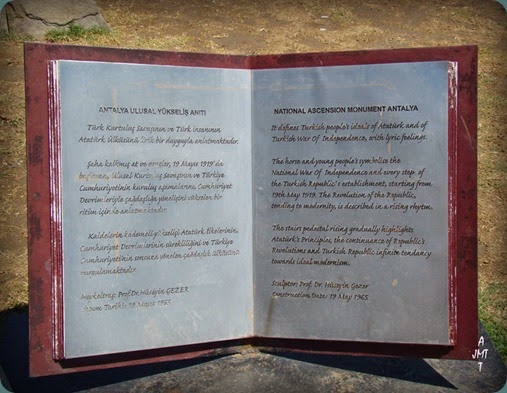 ANTALYA ULUSAL YÜKSELİŞ ANITI
Türk Kurtuluş Savaşının ve Türk insanının
Atatürk Ülküsünü lirik bir duyguyla anlatmaktadır.
Şaha kalkmış at ve gençler, 19 Mayıs 1919'da
başlayan, Ulusal Kurtuluş Savaşının ve Türkiye
Cumhuriyetinin kuruluş aşamalarını, Cumhuriyet
Devrimleriyle çağdaşlığa yönelişini yükselen bir
ritim için anlatmaktadır.
Kaidelerin kademeli yükselişi Atatürk İlkelerinin,
Cumhuriyet Devrimlerinin sürekliliğini ve Türkiye
Cumhuriyetinin sonsuza yönelen çağdaşlık ülküsünü
vurgulamaktadır.
Heykeltraş: Prof.Dr.Hüseyin GEZER
Yapım Tarihi: 19 Mayıs 1965
NATIONAL ASCENSION MONUMENT ANTALYA
It defines Turkish people's ideals of Atatürk and of
Turkish War Of Independence, with lyric feelings.
The horse and young people's symbolizes the
National War Of Independence and every step of
the Turkish Republic's establishment, starting from
19th May 1919. The Revolution of the Republic,
tending to modernity, is described in a rising rhytm.
The stairs pedestal rising gradually highlights
Atatürk's Principles, the continuance of Republic's
Revolutions and Turkish Republic infinite tendancy
towards ideal modernism.
Sculptor: Prof. Dr. Hüseyin Gezer
Construction Date: 19 May 1965
A
JMT
T